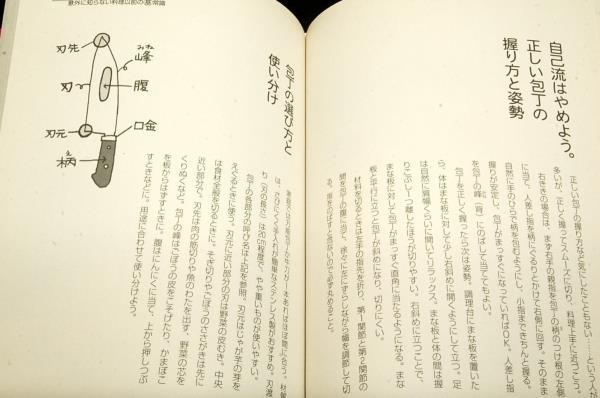 自己流はやめよう。
正しい包丁の
握り方と姿勢
正しい包丁の握り方など気にしたこともない……という人が
多いが、正しく握ってスムーズに切り、料理上手に近づこう。
右ききの場合は、まず右手の親指を包丁の柄のつけ根の左側
に当て、人差し指を柄にくるりとかけて右側に回す。そのまま
自然に手のひらで柄を包むようにし、小指まできちんと握る。
握りが安定し、包丁がまっすぐになっていればOK。人差し指
を包丁の峰(背)にのばして当ててもよい。
包丁を正しく握ったら次は姿勢。調理台にまな板を置いた
ら、体はまな板に対して少し右斜めに開くようにして立つ。足
は自然に肩幅くらいに開いてリラックス。まな板と体の間は握
りこぶし一つ離したほうが切りやすい。右斜めに立つことで、
まな板に対して包丁がまっすぐ直角に当たるようになる。まな
板と平行に立つと包丁が斜めになり、切りにくい。
材料を切るときは左手の指先を折り、第1関節と第2関節の
間を包丁の腹に当て、徐々に左にずらしながら幅を調節して切
る。指をのばすと危ないので必ず丸めること。
意外に知らない料理以前の(基)常識
包丁の選び方と
使い分け
刃先
峰
みね
刃
腹
刃元
口金
柄
え
家庭では万能包丁か牛刀が1本あればほぼ間に合う。材質
は、さびにくく手入れが簡単なステンレス製がおすすめ。刃渡
り(刃の長さ)は
cm程度で、やや重いものが使いやすい。
包丁の各部分の呼び名は上記を参照。刃元はじゃが芋の芽を
えぐるときに使う。刃元に近い部分の刃は野菜の皮むき。中央
は食材全般を切るときに。そぎ切りやごぼうのささがきは先に
近い部分で。刃先は肉の筋切りや魚のわたを出す、野菜の芯を
くりぬくなど。包丁の峰はごぼうの皮をこそげたり、かまぼこ
を板からはずすときに。腹はにんにくに当て、上から押しつぶ
すときなどに。用途に合わせて使い分けよう。